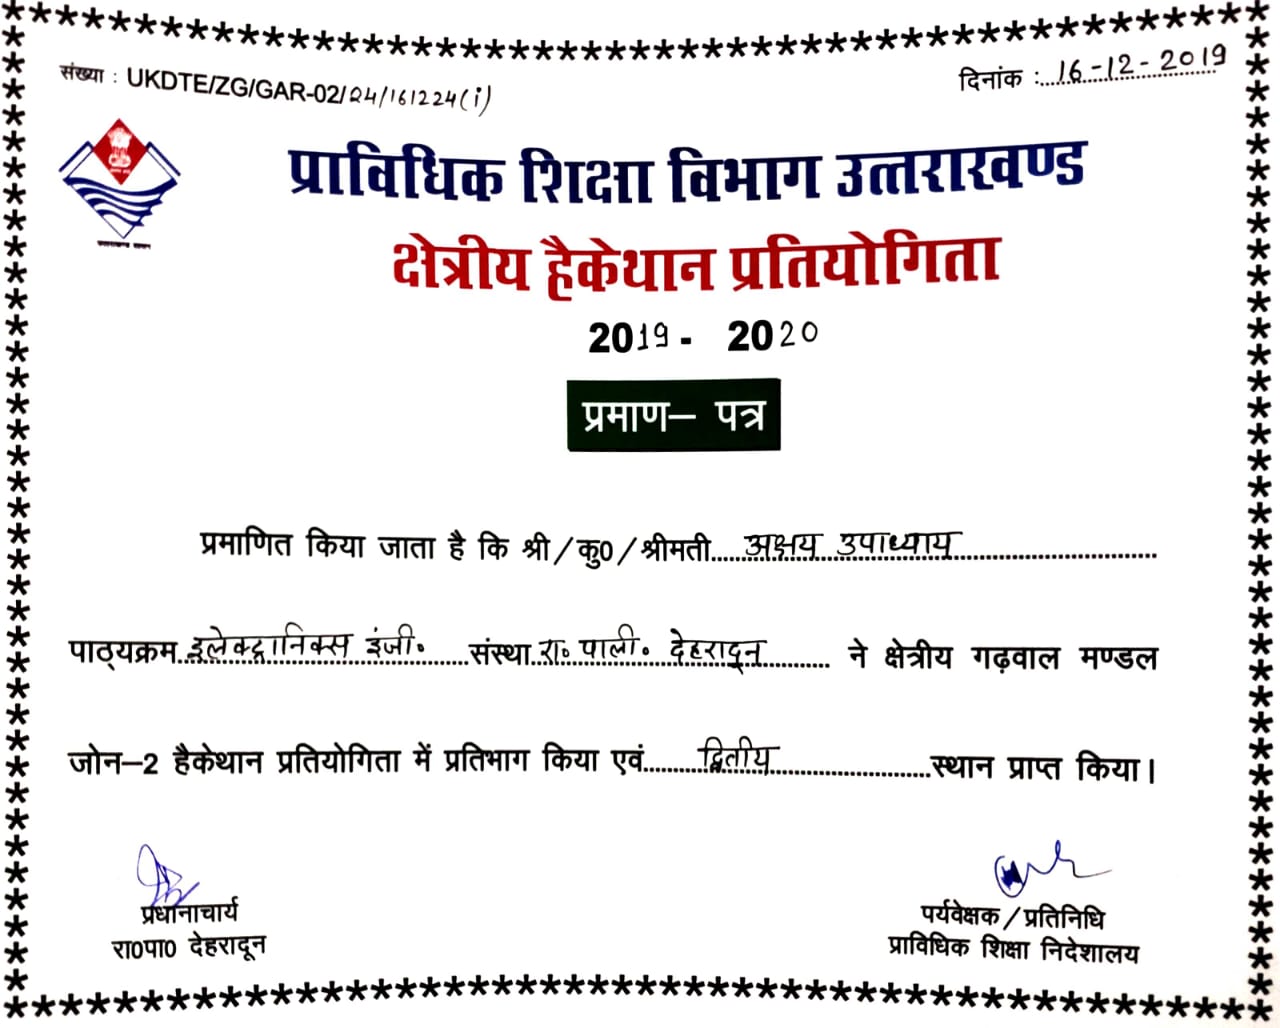 संख्या : UKDTE/ZG/GAR-02/24/161224(i)
दिनांक : 16-12-2019
प्राविधिक शिक्षा विभाग उत्तराखण्ड
क्षेत्रीय हैकेथान प्रतियोगिता
2019 - 2020
प्रमाण– पत्र
प्रमाणित किया जाता है कि श्री/कु0/श्रीमती.....अक्षय उपाध्याय.....
पाठ्यक्रम..इलेक्ट्रानिक्स इंजी॰.....संस्था..रा॰ पाली॰ देहरादून..... ने क्षेत्रीय गढ़वाल मण्डल
जोन–2 हैकेथान प्रतियोगिता में प्रतिभाग किया एवं.....द्वितीय.....स्थान प्राप्त किया।
प्रधानाचार्य
रा0पा0 देहरादून
पर्यवेक्षक/प्रतिनिधि
प्राविधिक शिक्षा निदेशालय